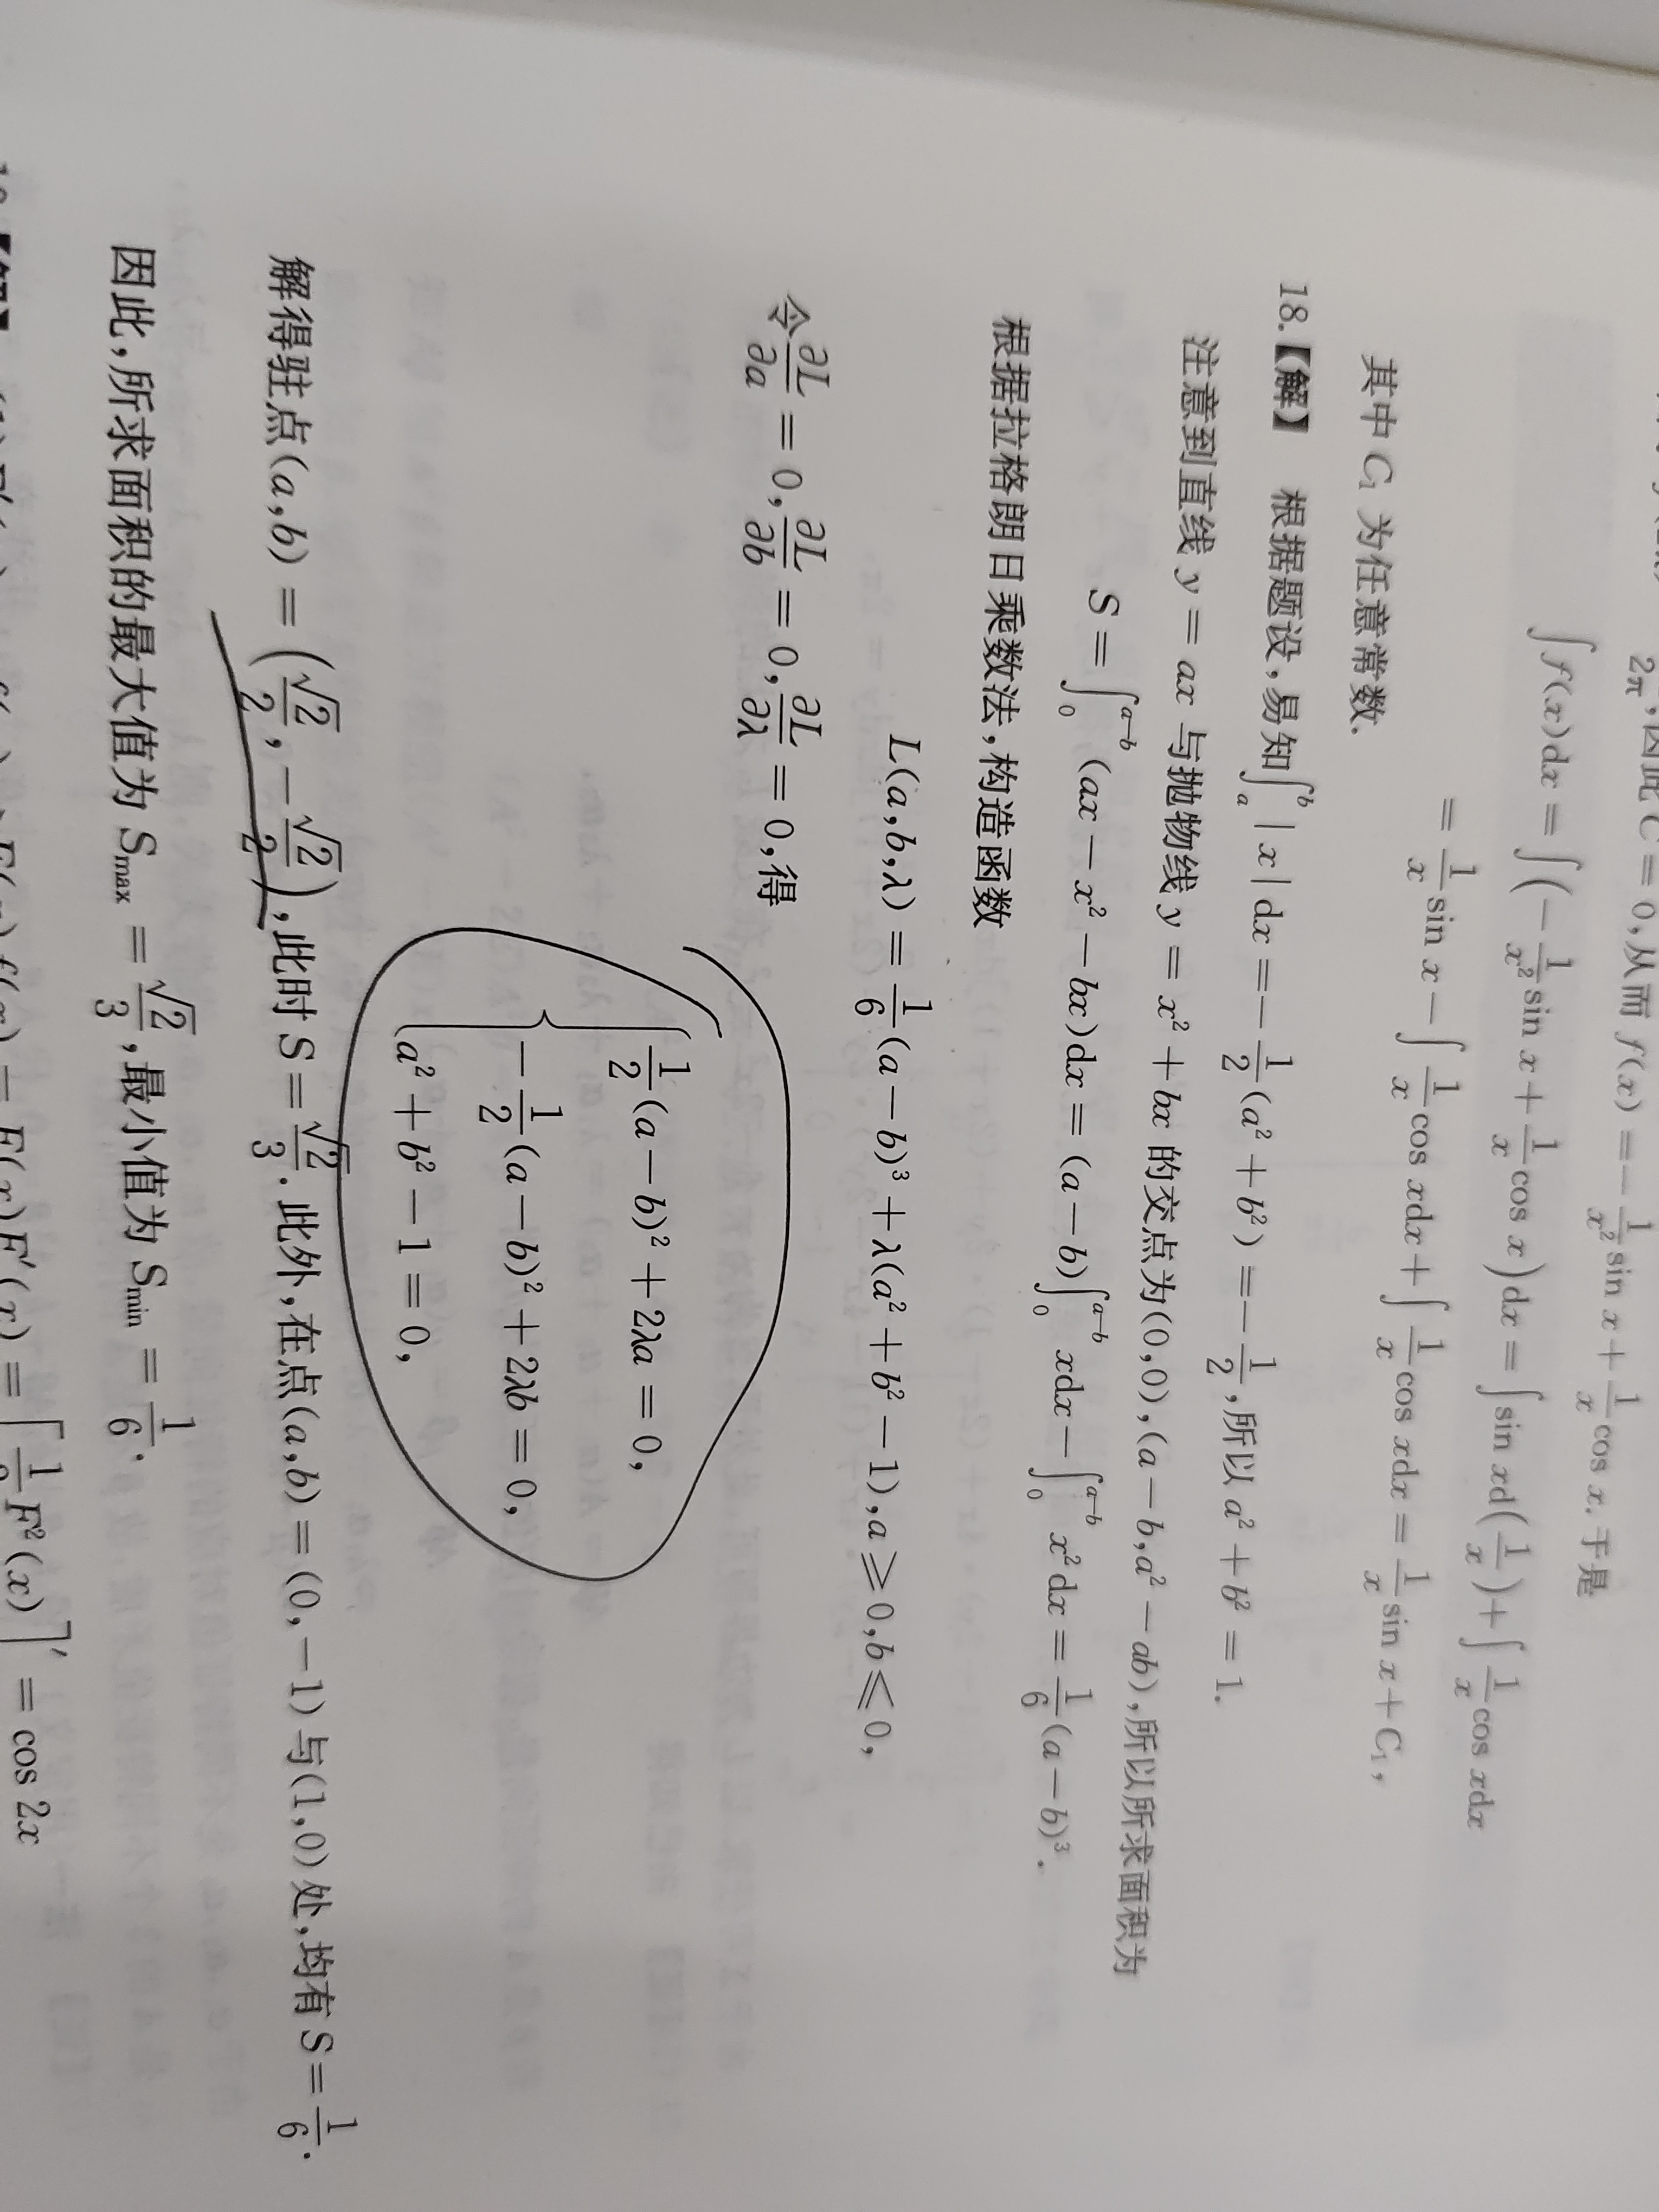 2π,因此 C = 0,从而 f(x) = −1/x² sin x + 1/x cos x. 于是
∫f(x)dx = ∫(−1/x² sin x + 1/x cos x)dx = ∫sin xd(1/x) + ∫1/x cos xdx
= 1/x sin x − ∫1/x cos xdx + ∫1/x cos xdx = 1/x sin x + C₁,
其中 C₁ 为任意常数.
18.【解】 根据题设,易知∫ₐᵇ | x | dx = −1/2(a² + b²) = −1/2,所以 a² + b² = 1.
注意到直线 y = ax 与抛物线 y = x² + bx 的交点为(0,0),(a − b,a² − ab),所以所求面积为
S = ∫₀ᵃ⁻ᵇ (ax − x² − bx)dx = (a − b)∫₀ᵃ⁻ᵇ xdx − ∫₀ᵃ⁻ᵇ x²dx = 1/6(a − b)³.
根据拉格朗日乘数法,构造函数
L(a,b,λ) = 1/6(a − b)³ + λ(a² + b² − 1),a ⩾ 0,b ⩽ 0,
令∂L/∂a = 0,∂L/∂b = 0,∂L/∂λ = 0,得
1/2(a − b)² + 2λa = 0,
−1/2(a − b)² + 2λb = 0,
a² + b² − 1 = 0,
解得驻点(a,b) = (√2/2, −√2/2),此时 S = √2/3. 此外,在点(a,b) = (0, −1)与(1,0)处,均有 S = 1/6.
因此,所求面积的最大值为 Smax = √2/3,最小值为 Smin = 1/6.
F(x)F′(x) = [1/2 F²(x)]′ = cos 2x